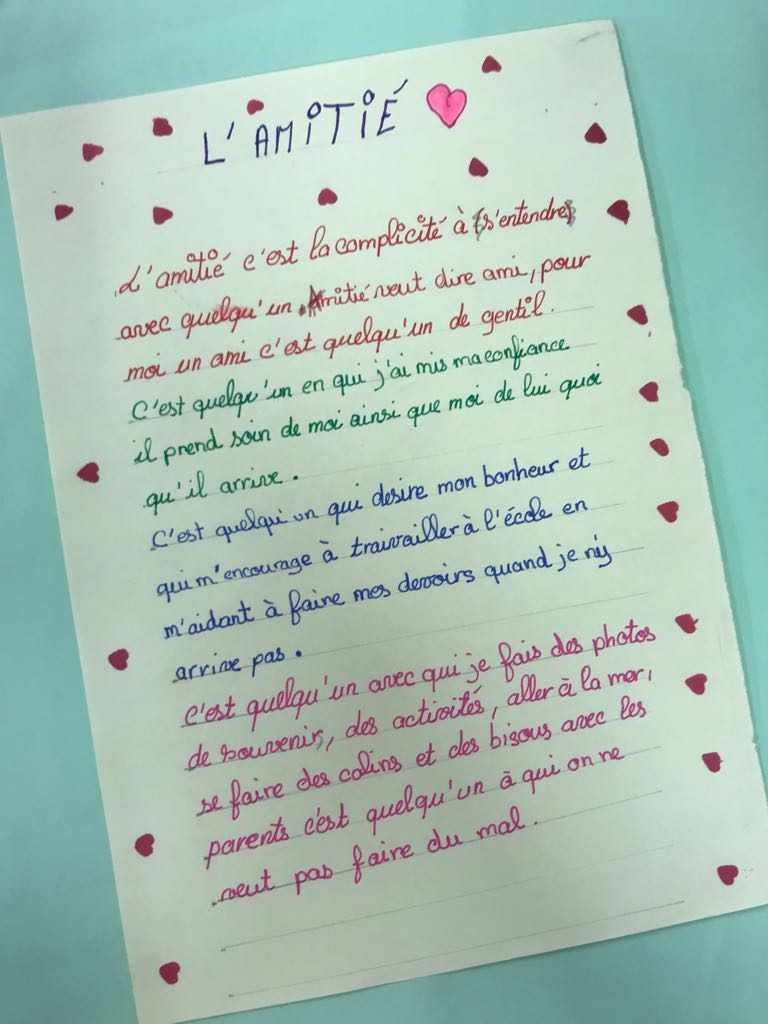 L'AMITIÉ
L'amitié c'est la complicité à (s'entendre)
avec quelqu'un. Amitié veut dire ami, pour
moi un ami c'est quelqu'un de gentil.
C'est quelqu'un en qui j'ai mis ma confiance
il prend soin de moi ainsi que moi de lui quoi
qu'il arrive.
C'est quelqu'un qui desire mon bonheur et
qui m'encourage à traivailler à l'école en
m'aidant à faire mes devoirs quand je n'y
arrive pas.
C'est quelqu'un avec qui je fais des photos
de souvenir, des activités, aller à la mer,
se faire des calins et des bisous avec les
parents c'est quelqu'un à qui on ne
veut pas faire du mal.